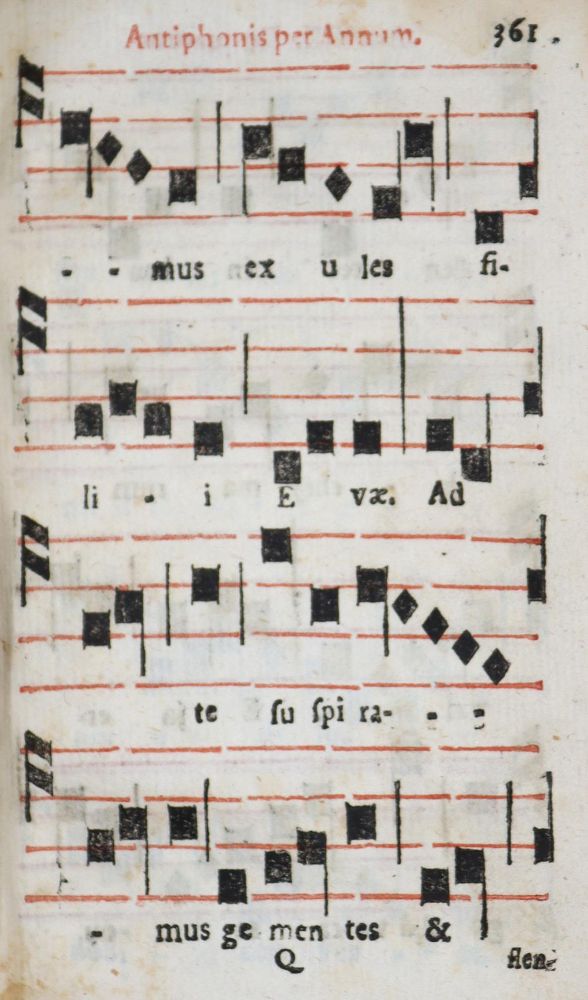 Antiphonis per Annum. 361.
- - mus ex u les fi-
li - i E væ. Ad
te ſu ſpi ra- - -
- mus ge men tes &
Q flen-